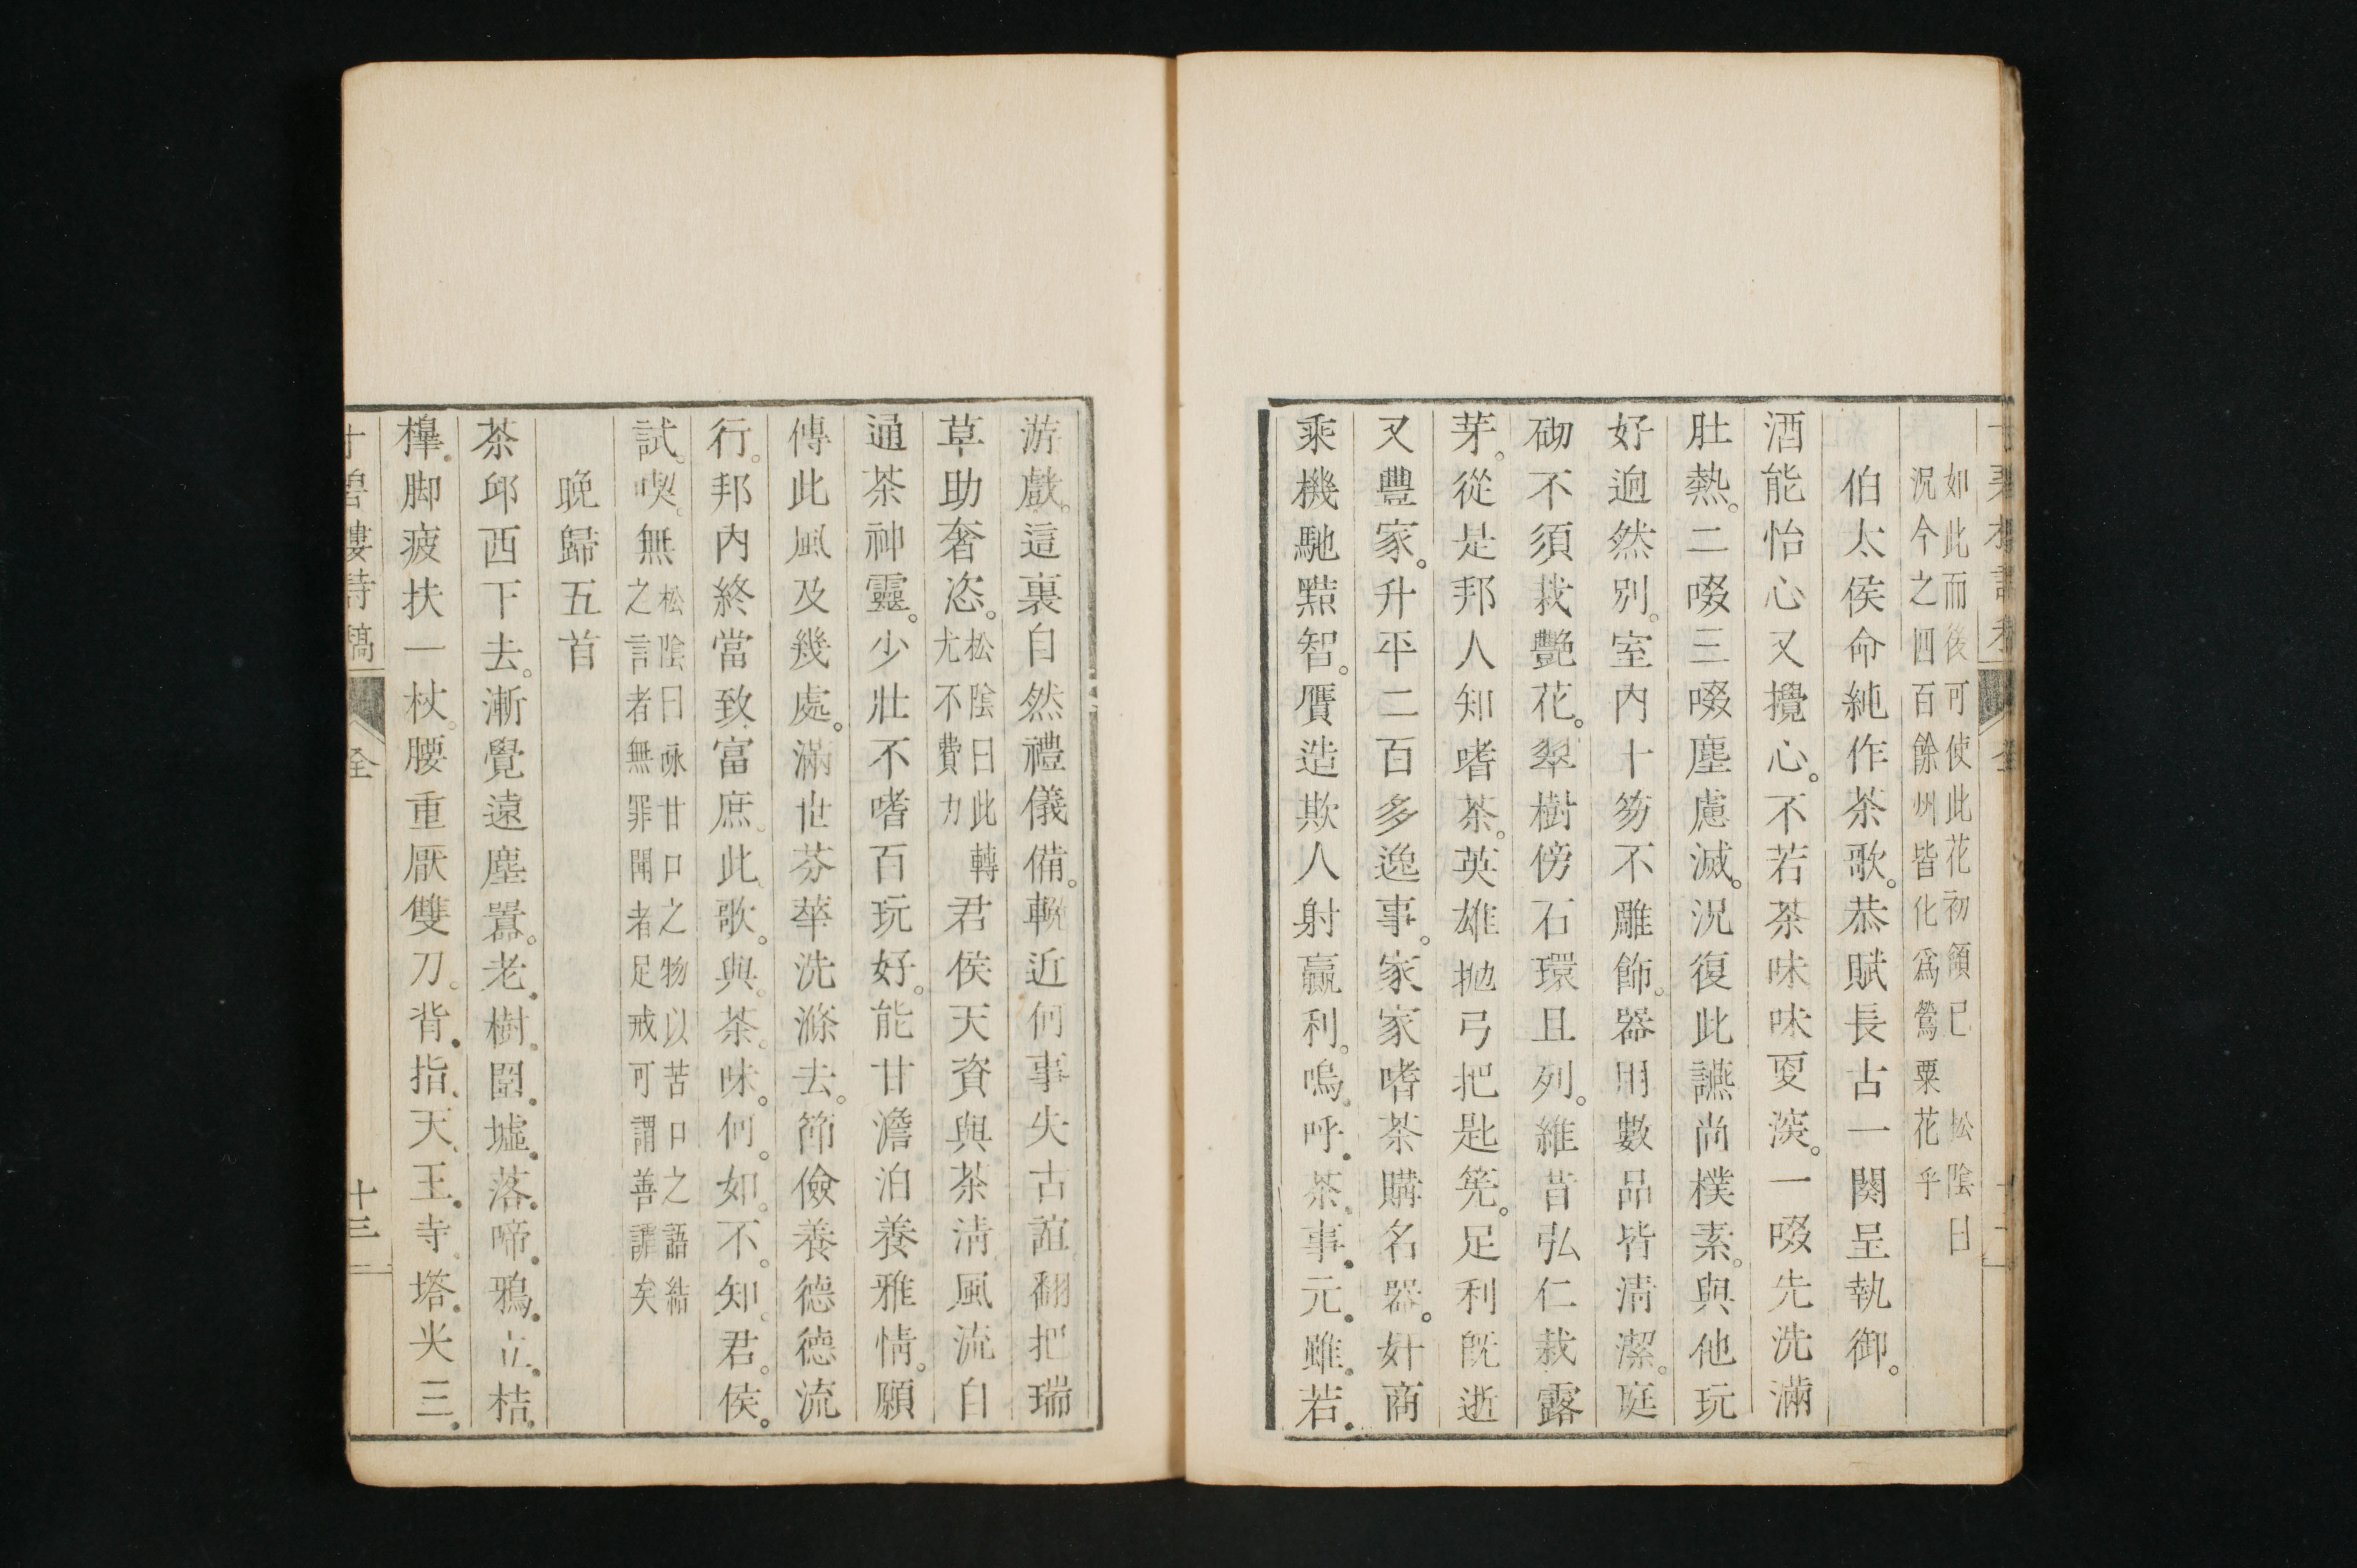 如此而後可使此花初領已　松陰曰
況今之四百餘州皆化爲鶯粟花乎
伯太侯命純作茶歌。恭賦長古一闋呈執御。
酒能怡心又攪心。不若茶味味更淡。一啜先洗滿
肚熱。二啜三啜塵慮滅。況復此讌尚樸素。與他玩
好逈然別。室內十笏不雕飾。器用數品皆淸潔。庭
砌不須栽艷花。翠樹傍石環且列。維昔弘仁栽露
芽。從是邦人知嗜茶。英雄拋弓把匙筅。足利旣逝
又豐家。升平二百多逸事。家家嗜茶購名器。奸商
乘機馳黠智。贋造欺人射贏利。嗚呼茶事元雖若
游戲。這裏自然禮儀備。輓近何事失古誼。翻把瑞
草助奢恣。松陰曰此轉
尤不費力
君侯天資與茶淸風流自
通茶神靈。少壯不嗜百玩好。能甘澹泊養雅情。願
傳此風及幾處。滿世芬華洗滌去。節儉養德德流
行。邦內終當致富庶。此歌與茶味。何如不知君侯。
試喫無
松陰曰咏甘口之物以苦口之語結
之言者無罪聞者足戒可謂善謔矣
晚歸五首
茶邱西下去。漸覺遠塵囂。老樹圍墟落。啼鴉立桔
槹。脚疲扶一杖。腰重厭雙刀。背指天王寺。塔尖三
十碧樓詩稿　全　十三